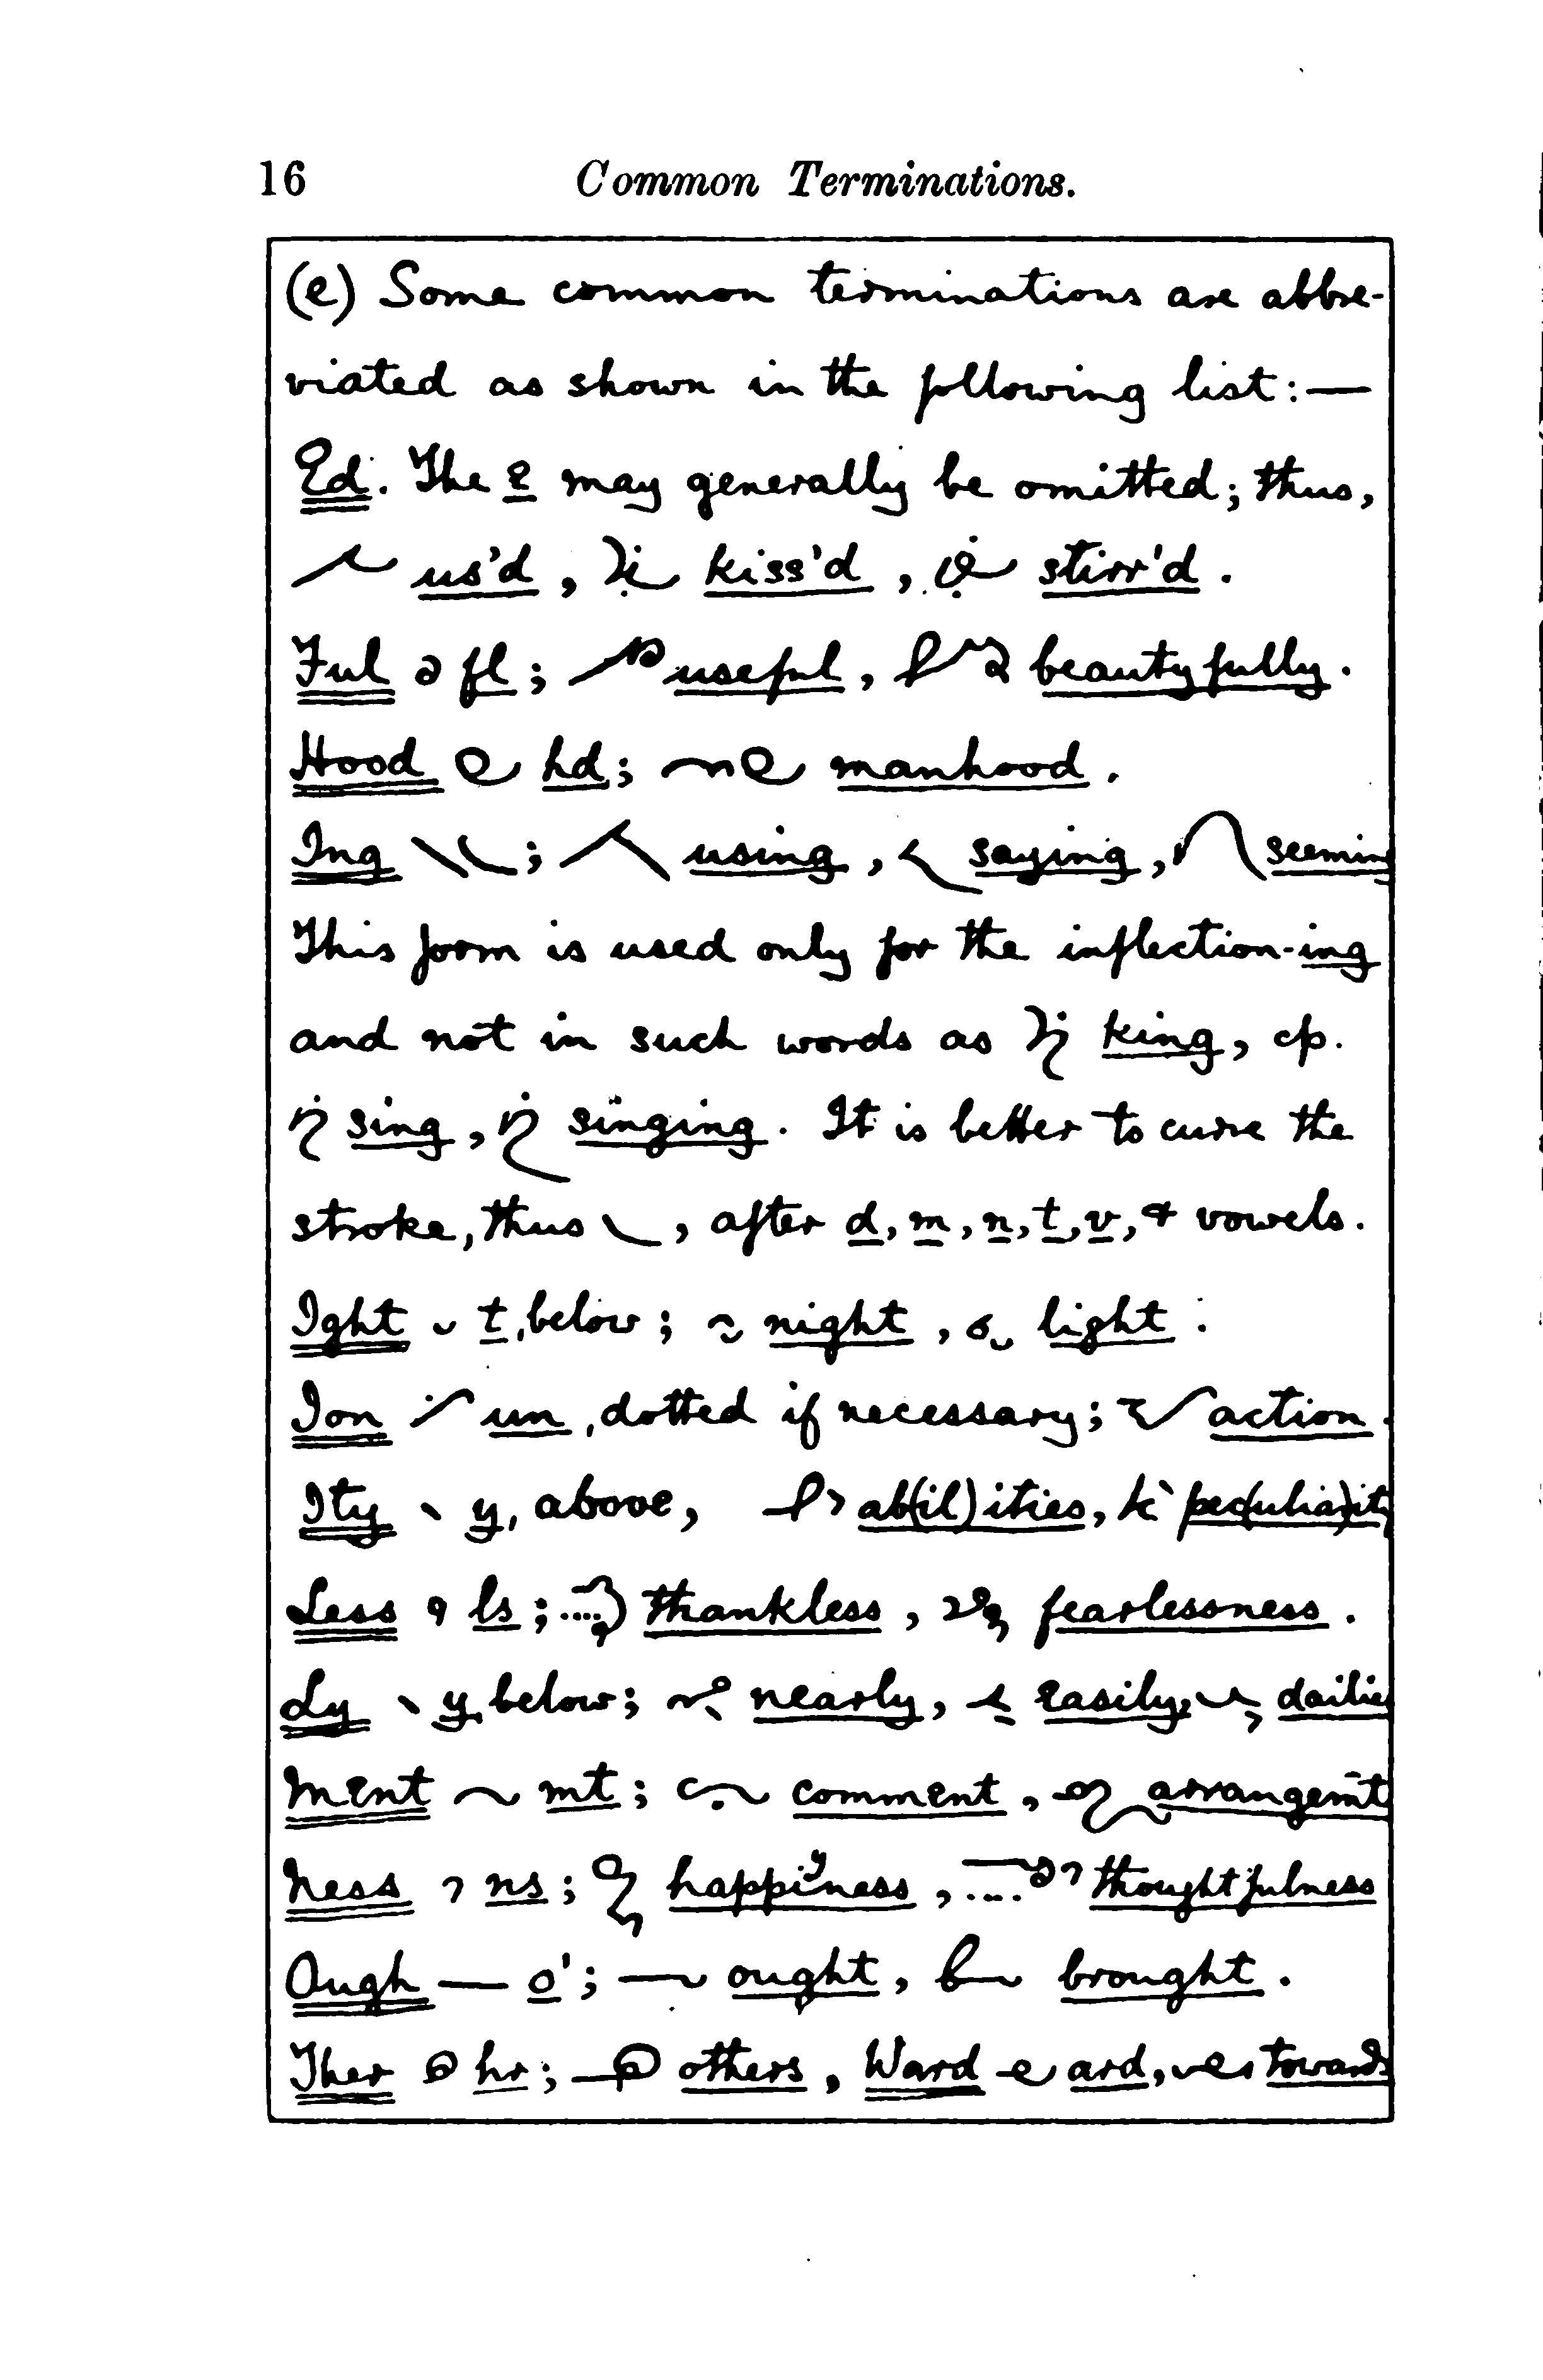 16 Common Terminations.
(e) Some common terminations are abbre-
viated as shown in the following list:—
Ed. The e may generally be omitted; thus,
us'd, kiss'd, stirr'd.
Ful fl; useful, beautyfully.
Hood hd; manhood.
Ing ; using, saying, seeming
This form is used only for the inflection -ing
and not in such words as king, cp.
sing, singing. It is better to curve the
stroke, thus , after d, m, n, t, v, & vowels.
Ight t, below; night, light.
Ion un, dotted if necessary; action.
Ity y, above, ab(il)ities, pec(uliar)ity
Less ls; thankless, fearlessness.
Ly y below; nearly, easily, dailies
Ment mt; comment, arrangemt
Ness ns; happiness, thoughtfulness
Ough o'; ought, brought.
Ther hr; others, Ward ard, towards